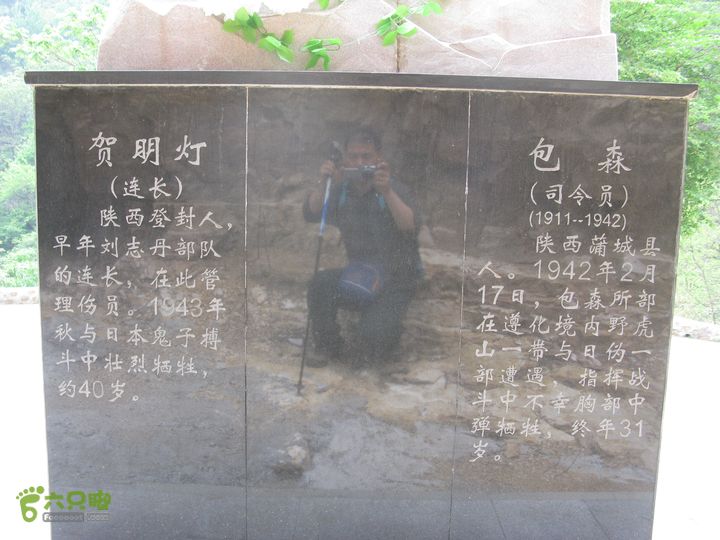 贺明灯
(连长)
陕西登封人,
早年刘志丹部队
的连长，在此管
理伤员。1943年
秋与日本鬼子搏
斗中壮烈牺牲，
约40岁。
包 森
(司令员)
(1911--1942)
陕西蒲城县
人。1942年2月
17日，包森所部
在遵化境内野虎
山一带与日伪一
部遭遇，指挥战
斗中不幸胸部中
弹牺牲，终年31
岁。
六只脚